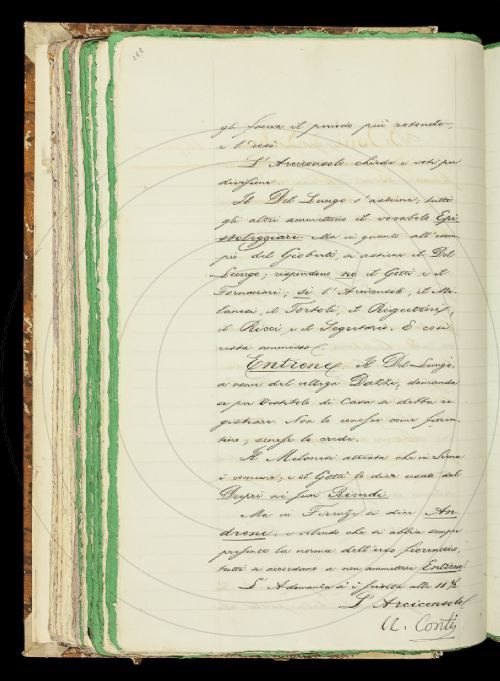 gli faceva il periodo più rotondo,
e l'usò.
L'Arciconsolo chiede i voti per
divisione.
Il Del Lungo s'astiene; tutti
gli altri ammettono il vocabolo Epi
stoleggiare. Ma in quanto all'esem
pio del Gioberti, si astiene il Del
Lungo; rispondono no il Gotti e il
Fornaciari; sì l'Arciconsolo, il Mi-
lanesi, il Tortoli, il Rigutini,
il Ricci, e il Segretario. E così
resta ammesso.
Entrone. Il Del-Lungo,
a nome del collega Dazzi, domanda
se per Vestibolo di Casa si debba re
gistrare. Non lo conosce come fioren-
tino; senese lo crede.
Il Milanesi attesta che in Siena
è comune; e il Gotti lo dice usato dal
Duprè ne' suoi Ricordi.
Ma in Firenze si dice An
drone, e volendo che si abbia sempre
presente la norma dell'uso fiorentino,
tutti si accordano a non ammettere Entrone.
L'Adunanza si è sciolta alle
L'Arciconsolo
A. Conti